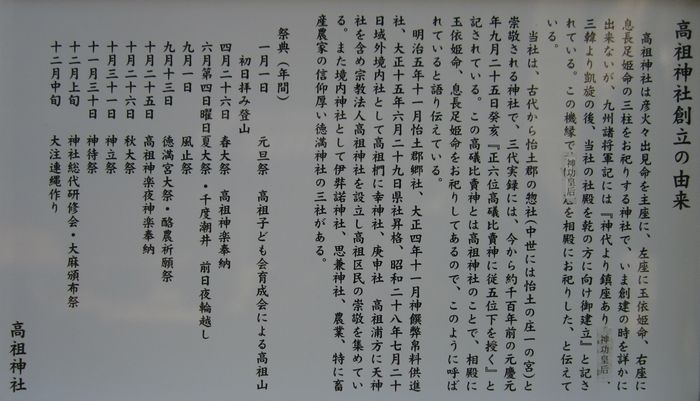 高祖神社創立の由来
高祖神社は彦火々出見命を主座に、左座に玉依姫命、右座に
息長足姫命の三柱をお祀りする神社で、いま創建の時を詳かに
出来ないが、九州諸将軍記には『神代より鎮座あり 神功皇后、
三韓より凱旋の後、当社の社殿を乾の方に向け御建立』と記さ
れている。この機縁で 神功皇后 を相殿にお祀りした、と伝えて
いる。
当社は、古代から怡土郡の惣社（中世には怡土の庄一の宮）と
崇敬される神社で、三代実録には、今から約千百年前の元慶元
年九月二十五日癸亥『正六位高礒比賣神に従五位下を授く』と
記されている。この高礒比賣神とは高祖神社のことで、相殿に
玉依姫命、息長足姫命をお祀りしてあるので、このように呼ば
れていると語り伝えている。
明治五年十一月怡土郡郷社、大正四年十一月神饌幣帛料供進
社、大正十五年六月二十九日県社昇格、昭和二十八年七月二十
日域外境内社として高祖椚に幸神社、庚申社 高祖浦方に天神
社を含め宗教法人高祖神社を設立し高祖区民の崇敬を集めてい
る。また境内神社として伊弉諾神社、思兼神社、農業、特に畜
産農家の信仰厚い徳満神社の三社がある。
祭典（年間）
一月一日 元旦祭 高祖子ども会育成会による高祖山
初日拝み登山
四月二十六日 春大祭 高祖神楽奉納
六月第四日曜日 夏大祭・千度潮井 前日夜輪越し
九月一日 風止祭
九月十三日 徳満宮大祭・酪農祈願祭
十月二十五日 高祖神楽夜神楽奉納
十月二十六日 秋大祭
十月三十一日 神立祭
十一月三十日 神待祭
十二月上旬 神社総代研修会・大麻頒布祭
十二月中旬 大注連縄作り
高祖神社